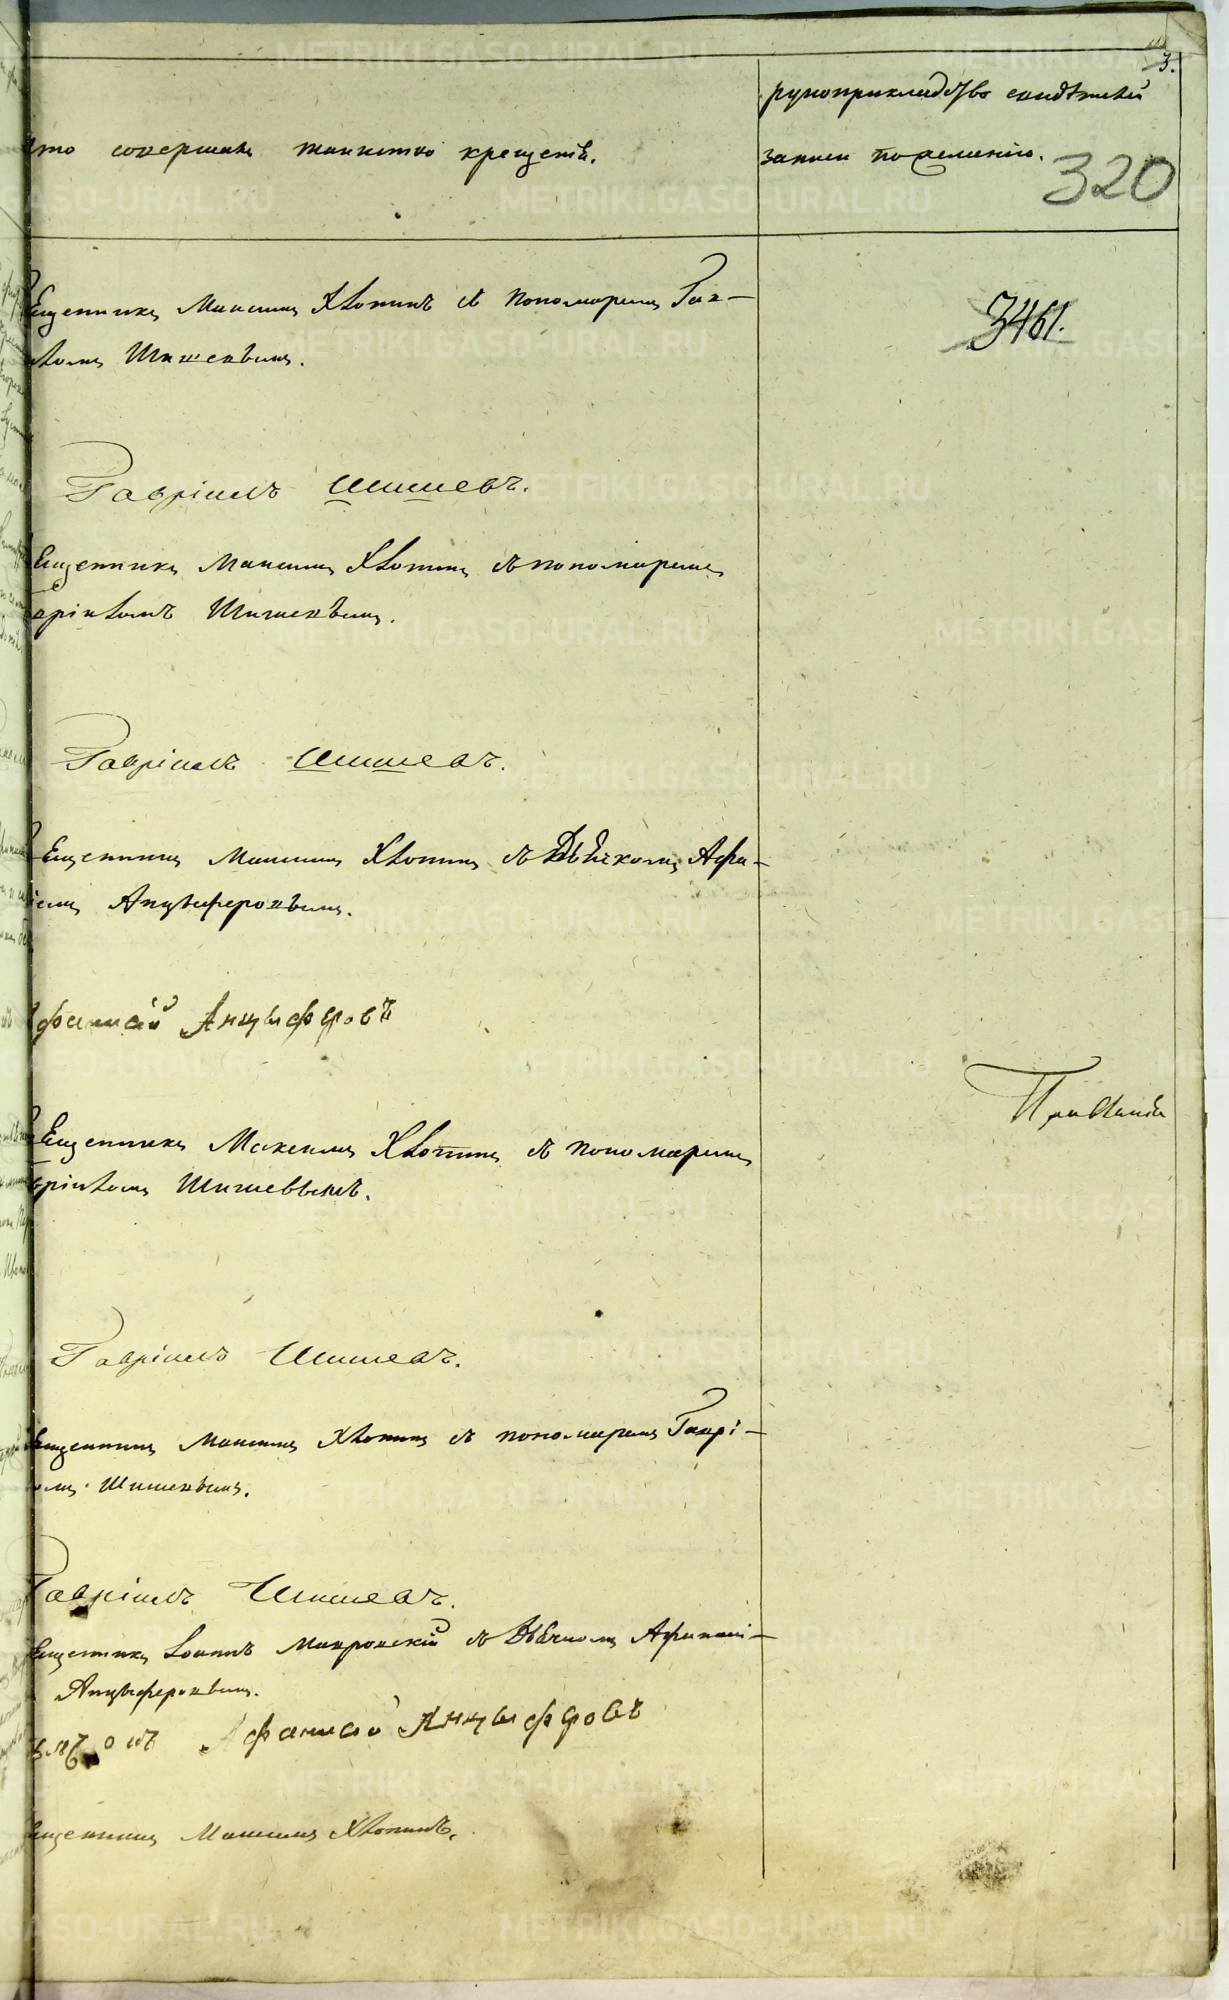 3.
рукоприкладство свидѣтелей
кто совершалъ таинство крещенія.
записи по желанію.
320
Священникъ Максимъ Хлопинъ съ пономаремъ Гав-
ріиломъ Шишевымъ.
3461.
Гавріилъ Шишевъ.
Священникъ Максимъ Хлопинъ съ пономаремъ
Гавріиломъ Шишевымъ.
Гавріилъ Шишевъ.
Священникъ Максимъ Хлопинъ съ Дьячкомъ Афа-
насіемъ Анцыферовымъ.
Афанасій Анцыферовъ
Священникъ Максимъ Хлопинъ съ пономаремъ
Гавріиломъ Шишевымъ.
Гавріилъ Шишевъ.
Священникъ Максимъ Хлопинъ съ пономаремъ Гаврі-
иломъ Шишевымъ.
Гавріилъ Шишевъ.
Священникъ Іоаннъ Макровскій съ Дьячкомъ Афанасі-
Анцыферовымъ.
Афанасій Анцыферовъ
Священникъ Максимъ Хлопинъ.
METRIKI.GASO-URAL.RU